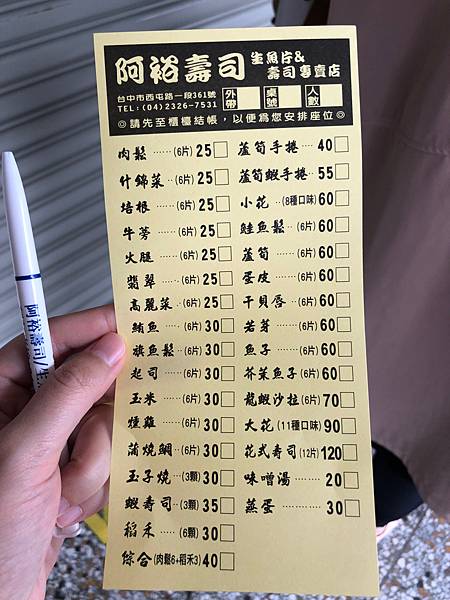 阿裕壽司 生魚片&
壽司專賣店
台中市西屯路一段361號
TEL:(04)2326-7531
外帶 桌號 人數
◎請先至櫃檯結帳,以便為您安排座位◎
肉鬆……(6片)25□
什錦菜‥(6片)25□
培根……(6片)25□
牛蒡……(6片)25□
火腿……(6片)25□
翡翠……(6片)25□
高麗菜‥(6片)25□
鮪魚……(6片)30□
旗魚鬆‥(6片)30□
起司……(6片)30□
玉米……(6片)30□
燻雞……(6片)30□
蒲燒鯛‥(6片)30□
玉子燒…(3顆)30□
蝦壽司‥(3顆)35□
稻禾……(6顆)30□
綜合(肉鬆6+稻禾3)40□
蘆筍手捲…40□
蘆筍蝦手捲‥55□
小花‥(8種口味)60□
鮭魚鬆‥(6片)60□
蘆筍……(6片)60□
蛋皮……(6片)60□
干貝唇‥(6片)60□
若芽……(6片)60□
魚子……(6片)60□
芥茉魚子(6片)60□
龍蝦沙拉(6片)70□
大花(11種口味)90□
花式壽司(12片)120□
味噌湯………20□
蒸蛋…………30□
阿裕壽司/生